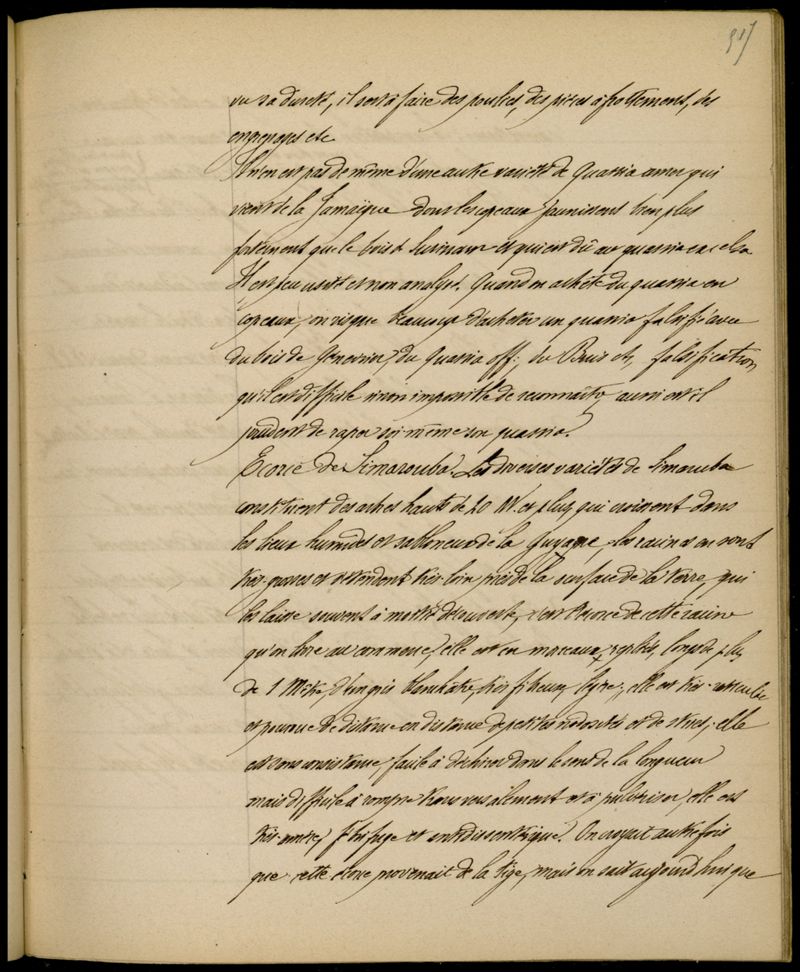 vu sa dureté, il sert à faire des poulies, des pièces à frottement, des
engrenages etc
Il n'en est pas de même d'une autre variété de Quassia amer qui
vient de la Jamaïque dont les copeaux jaunissent bien plus
fortement que le bois de Surinam et qui est dû au quassia excelsa
Il est peu usité et non analysé. Quand on achète du quassia en
copeaux, on risque beaucoup d'acheter un quassia falsifié avec
du bois de Genevrier, du Quassia off; du Buis etc, falsification
qu'il est difficile sinon impossible de reconnaître aussi est il
prudent de raper soi même son quassia.
Ecorce de Simarouba. Les diverses variétés de Simaruba
constituent des arbres hauts de 20 M. et plus, qui croissent dans
les lieux humides et sablonneux de la Guyane, les racines en sont
très-grosses et s'étendent très loin près de la surface de la terre, qui
les laisse souvent à moitié découverte, c'est l'écorce de cette racine
qu'on livre au commerce, elle est en morceaux repliés, longs de plus
de 1 Mètre, d'un gris blanchâtre, très fibreux, légère; elle est très
et pourvue de distance en distance de petites nodosités et de stries; elle
est sans consistance, facile à déchirer dans le sens de la longueur
mais difficile à rompre transversalement et à pulvériser, elle est
très-amère, fébrifuge et antidissentérique. On croyait autrefois
que cette écorce provenait de la tige, mais on sait aujourd'hui que